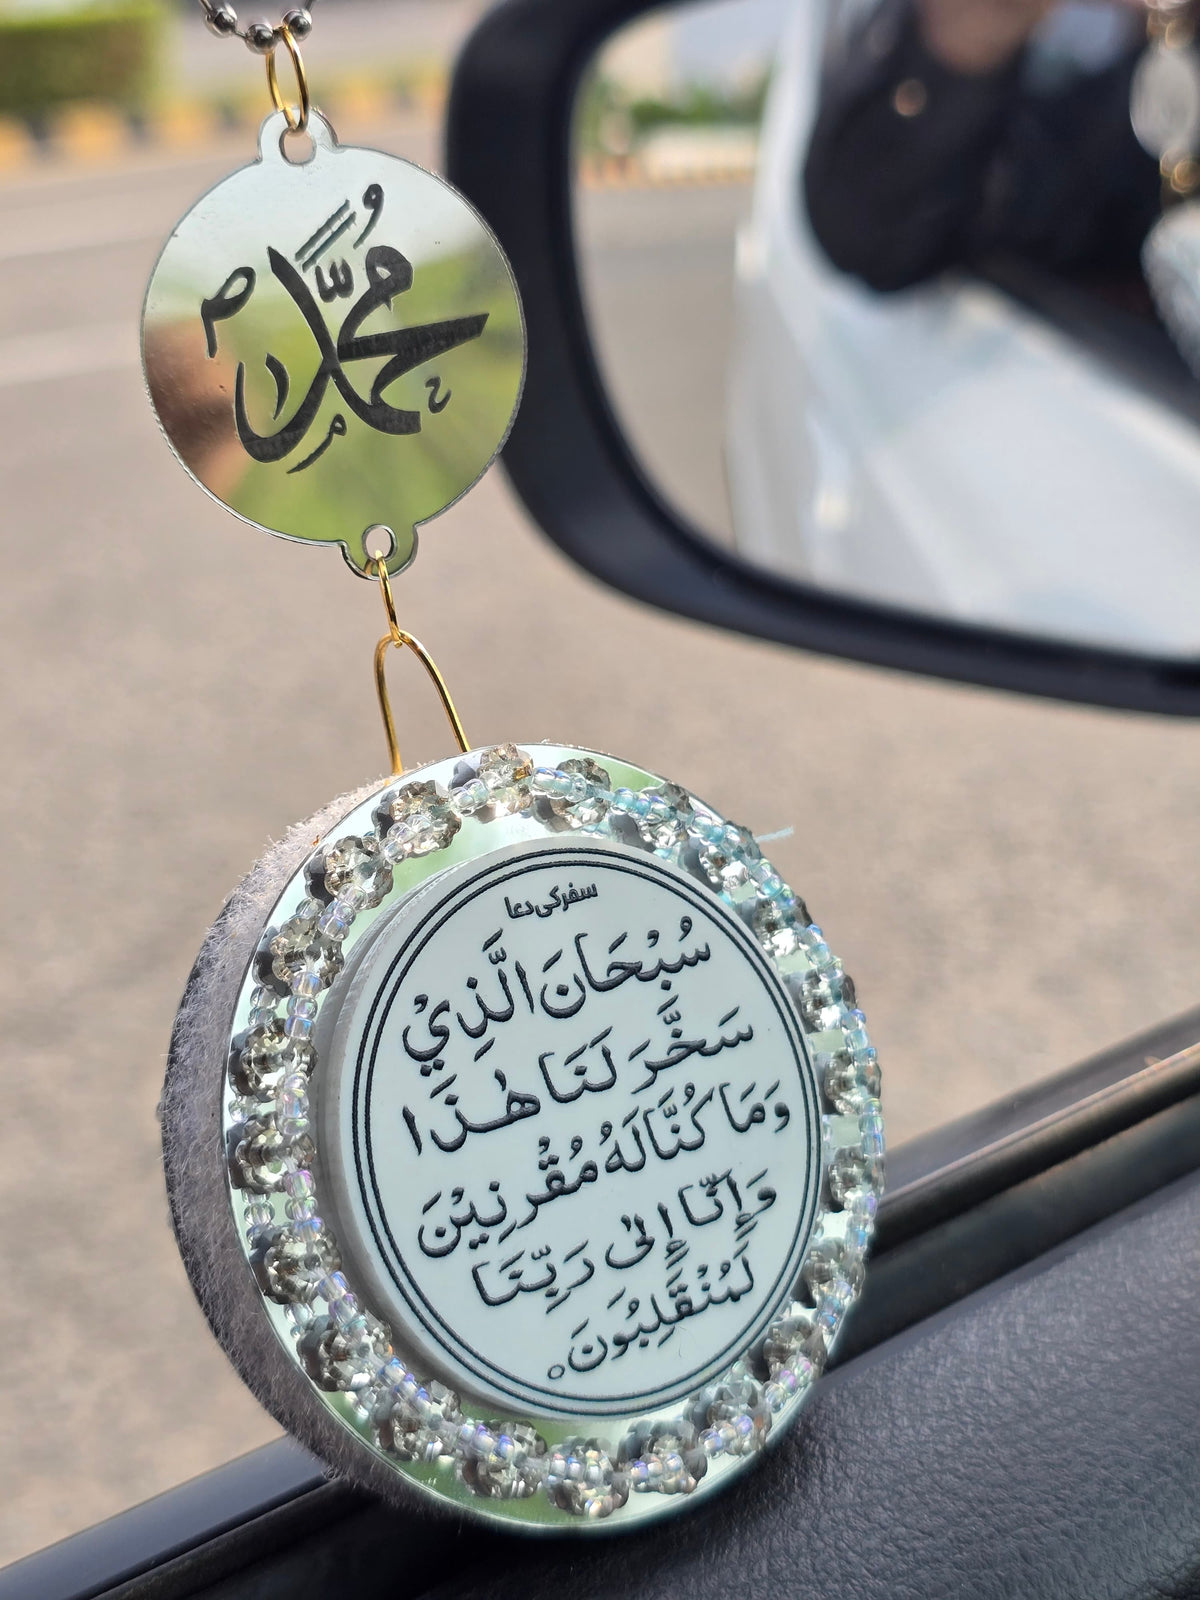 مُحَمَّد
سفر کی دعا
سُبْحَانَ الَّذِيْ
سَخَّرَ لَنَا هٰذَا
وَمَا كُنَّا لَهُ مُقْرِنِيْنَ
وَإِنَّا إِلٰى رَبِّنَا
لَمُنْقَلِبُونَ